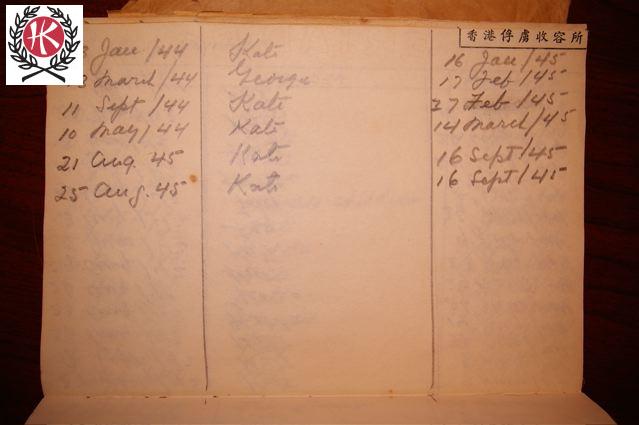 HK
香港俘虜收容所
Jan/44 Kate 16 Jan/45
March/44 George 17 Feb/45
11 Sept/44 Kate 27 Feb/45
10 May/44 Kate 14 March/45
21 Aug. 45 Kate 16 Sept/45
25 Aug. 45 Kate 16 Sept/45